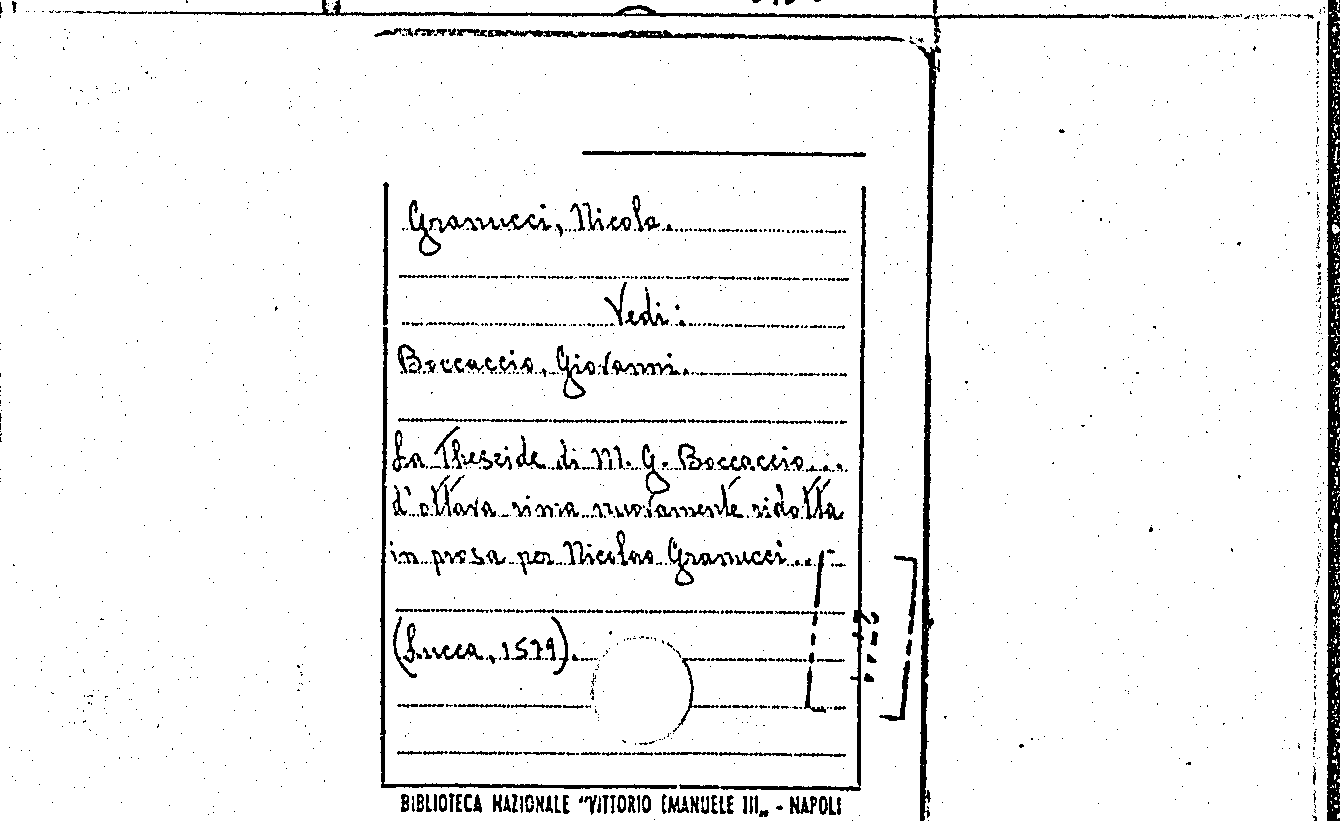 Granucci, Nicola.
Vedi:
Boccaccio, Giovanni.
La Theseide di M. G. Boccaccio...
d'ottava rima nuovamente ridotta
in prosa per Nicolao Granucci...
(Lucca, 1579).
BIBLIOTECA NAZIONALE "VITTORIO EMANUELE III„ - NAPOLI